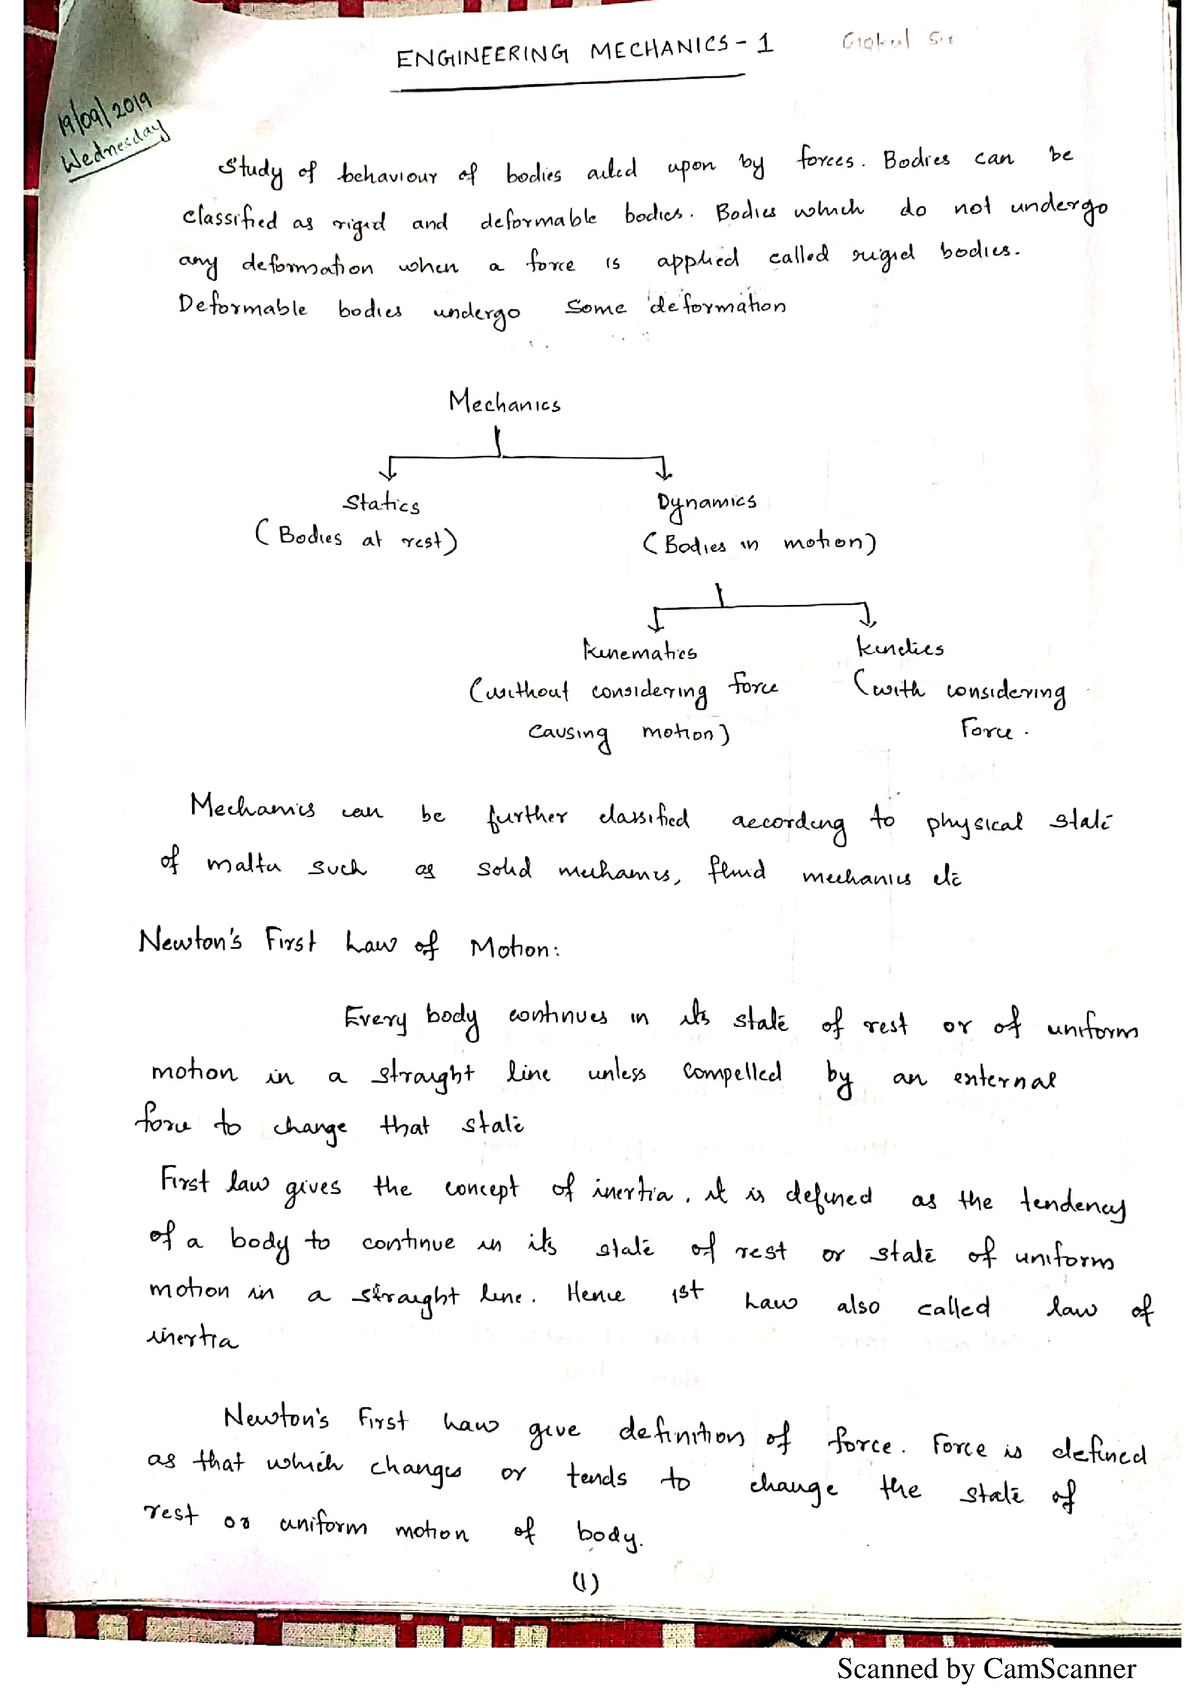 ENGINEERING MECHANICS - 1
Gokul Sir
19/09/2019
Wednesday
Study of behaviour of bodies acted upon by forces. Bodies can be
classified as rigid and deformable bodies. Bodies which do not undergo
any deformation when a force is applied called rigid bodies.
Deformable bodies undergo some deformation
Mechanics
Statics Dynamics
(Bodies at rest) (Bodies in motion)
Kinematics Kinetics
(without considering force (with considering
causing motion) Force.
Mechanics can be further classified according to physical state
of matter such as solid mechanics, fluid mechanics etc
Newton's First Law of Motion:
Every body continues in its state of rest or of uniform
motion in a straight line unless compelled by an external
force to change that state
First law gives the concept of inertia. it is defined as the tendency
of a body to continue in its state of rest or state of uniform
motion in a straight line. Hence 1st Law also called law of
inertia
Newton's First Law give definition of force. Force is defined
as that which changes or tends to change the state of
rest or uniform motion of body.
(1)
Scanned by CamScanner